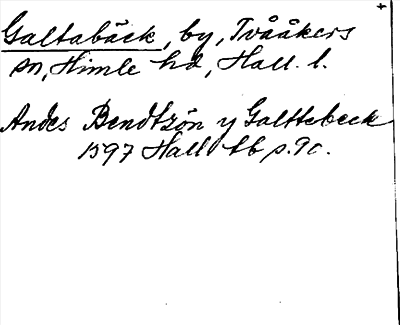 Galtabäck, by, Tvååkers
sn, Himle hd, Hall. l.
Andes Bendtzön y Galttebeck
1597 Hall tb p. 90.